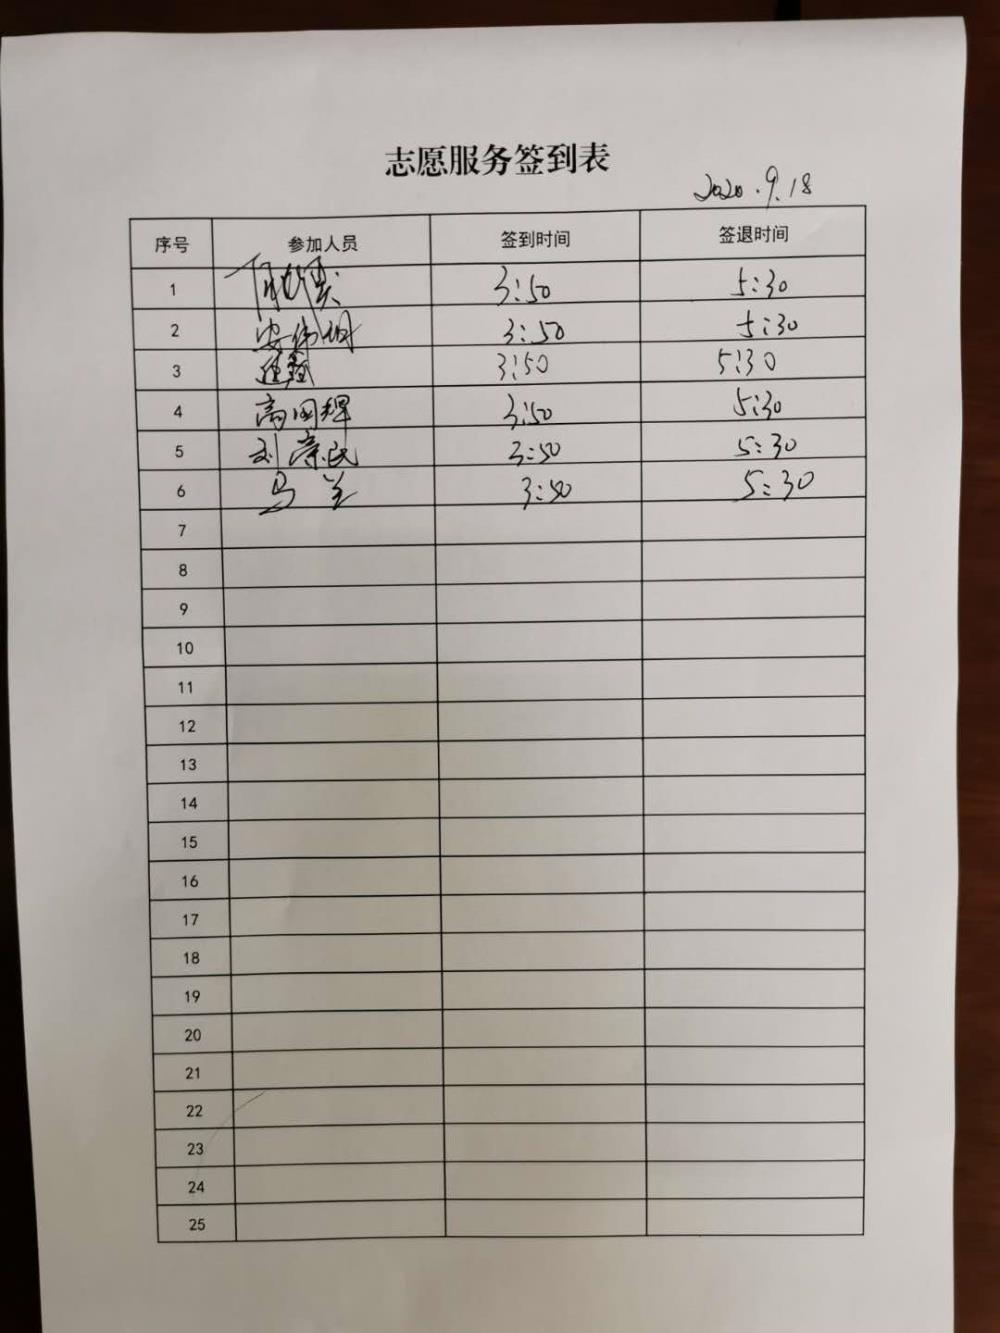 志愿服务签到表
2020.9.18
序号 参加人员 签到时间 签退时间
1 3:50 5:30
2 安伟钢 3:50 5:30
3 3:50 5:30
4 高国辉 3:50 5:30
5 刘荣民 3:50 5:30
6 马兰 3:50 5:30
7
8
9
10
11
12
13
14
15
16
17
18
19
20
21
22
23
24
25